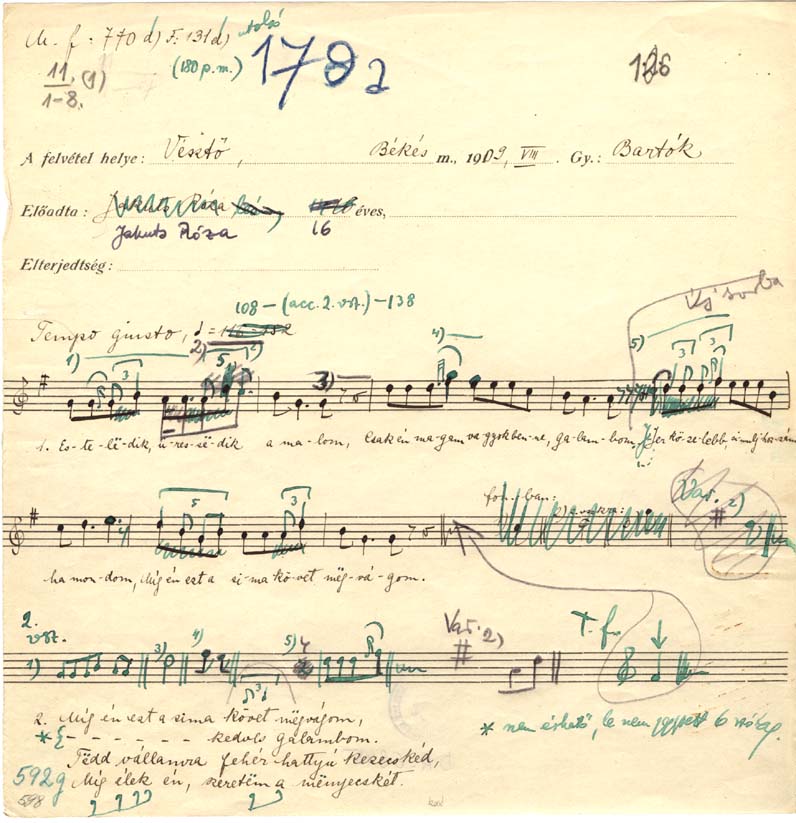 M. f. 770 d) F. 131 d) utolsó
11. (1) (180 p.m.)
1-8.
A felvétel helye: Vésztő, Békés m., 1909, VIII. Gy.: Bartók
Előadta: éves,
Jakuts Róza 16
Elterjedtség:
108 – (acc. 2. vst.) – 138
Tempo giusto,
Új sorba
1) 3 2) 5 2) 3) 4) 5) 3 3
1. Es-te-lë-dik, ü-res-së-dik a ma-lom, Csak én ma-gam va-gyok ben-ne, ga-lam-bom. Jer kö-ze-lebb,
5 3
ha mon-dom, Míg én ezt a si-ma kö-vet mëg-vá-gom.
Var. 2)
2.
vst. Var. 2) T. f.
1) 3) 4) 5)
3
2. Míg én ezt a sima követ mëgvágom,
* – – – – – – – kedvels galambom.
Tëdd vállamra fehér hattyú kezecskéd,
Míg élek én, szeretëm a mënyecskét.
* nem érthető, de nem
592g
598